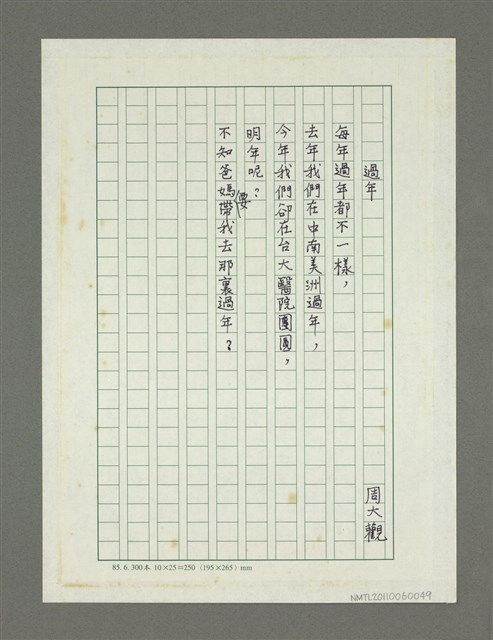 過年
周大觀
每年過年都不一樣，
去年我們在中南美洲過年，
今年我們卻在台大醫院團圓，
明年呢？
不知爸媽要帶我去那裏過年？
85. 6. 300本 10×25=250 (195×265) mm
NMTL20110060049